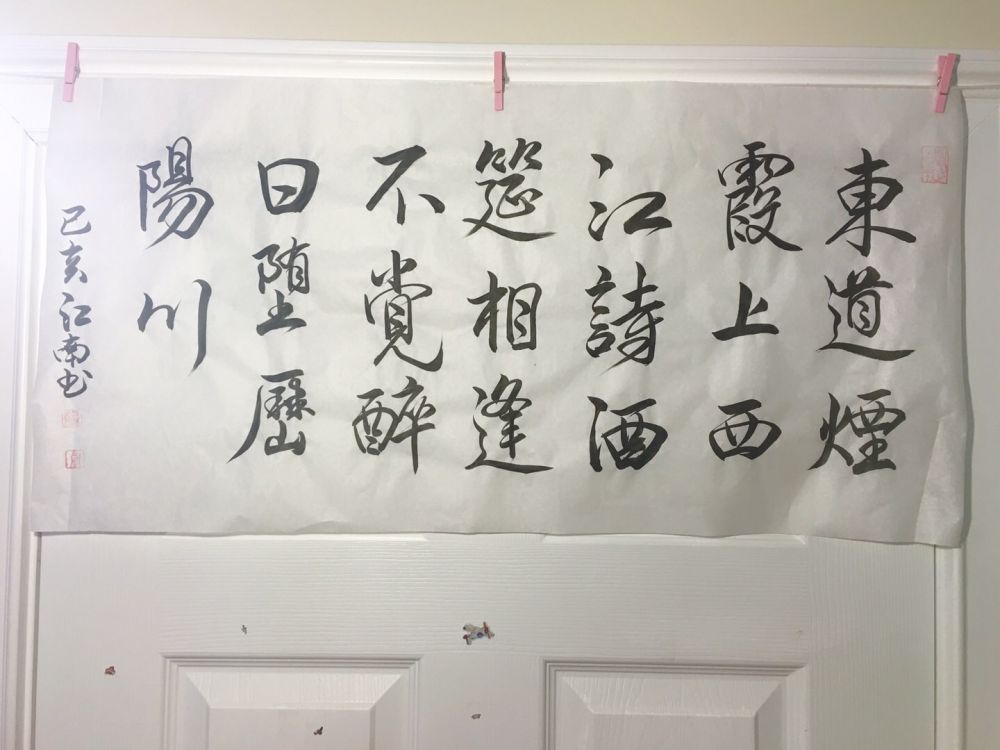 東道煙
霞上西
江詩酒
筵相逢
不覺醉
日堕歷
陽川
己亥江南书